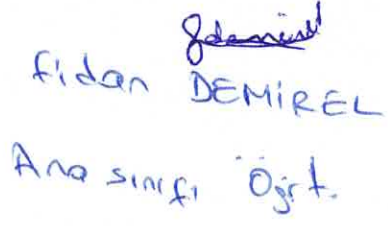 Fidan DEMİREL
Ana sınıfı Öğrt.